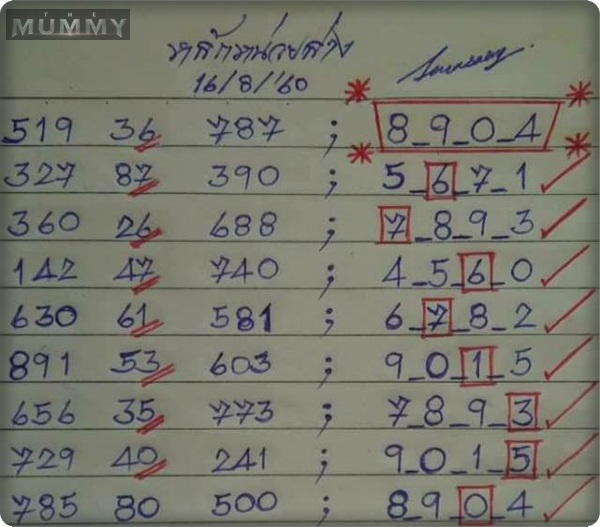 THE
MUMMY
หลักหน่วยล่าง
16/8/'60
519 36 787 ; 8_9_0_4
327 87 390 ; 5_6_7_1
360 26 688 ; 7_8_9_3
142 47 740 ; 4_5_6_0
630 61 581 ; 6_7_8_2
891 53 603 ; 9_0_1_5
656 35 773 ; 7_8_9_3
729 40 241 ; 9_0_1_5
785 80 500 ; 8_9_0_4